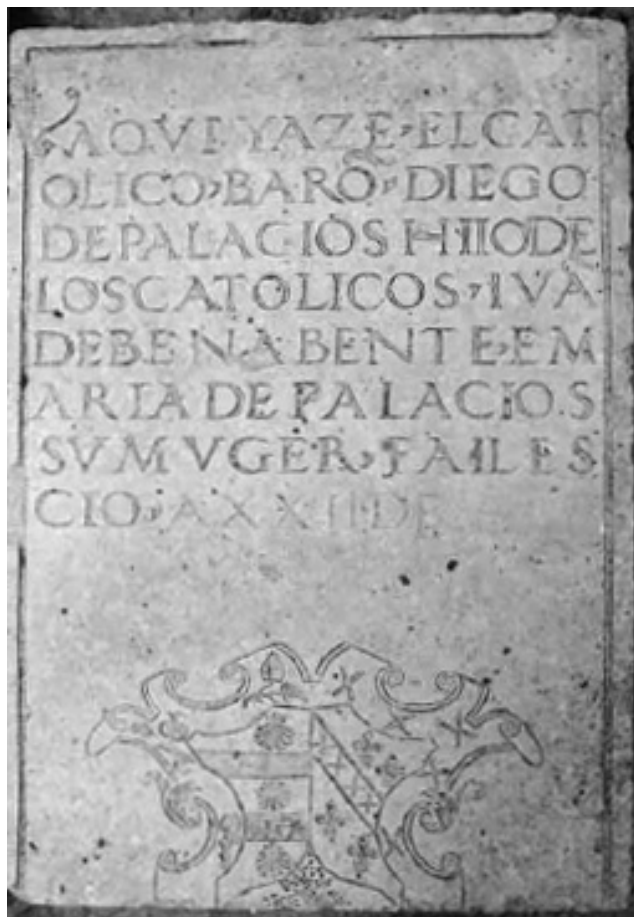 AQVI YAZE · EL CAT
OLICO · BARŌ · DIEGO
DE PALACIOS HIIO DE
LOS CATOLICOS · IVĀ
DE BENABENTE · E M
ARIA DE PALACIOS
SV MVGER · FALLES
CIO · A XXII DE